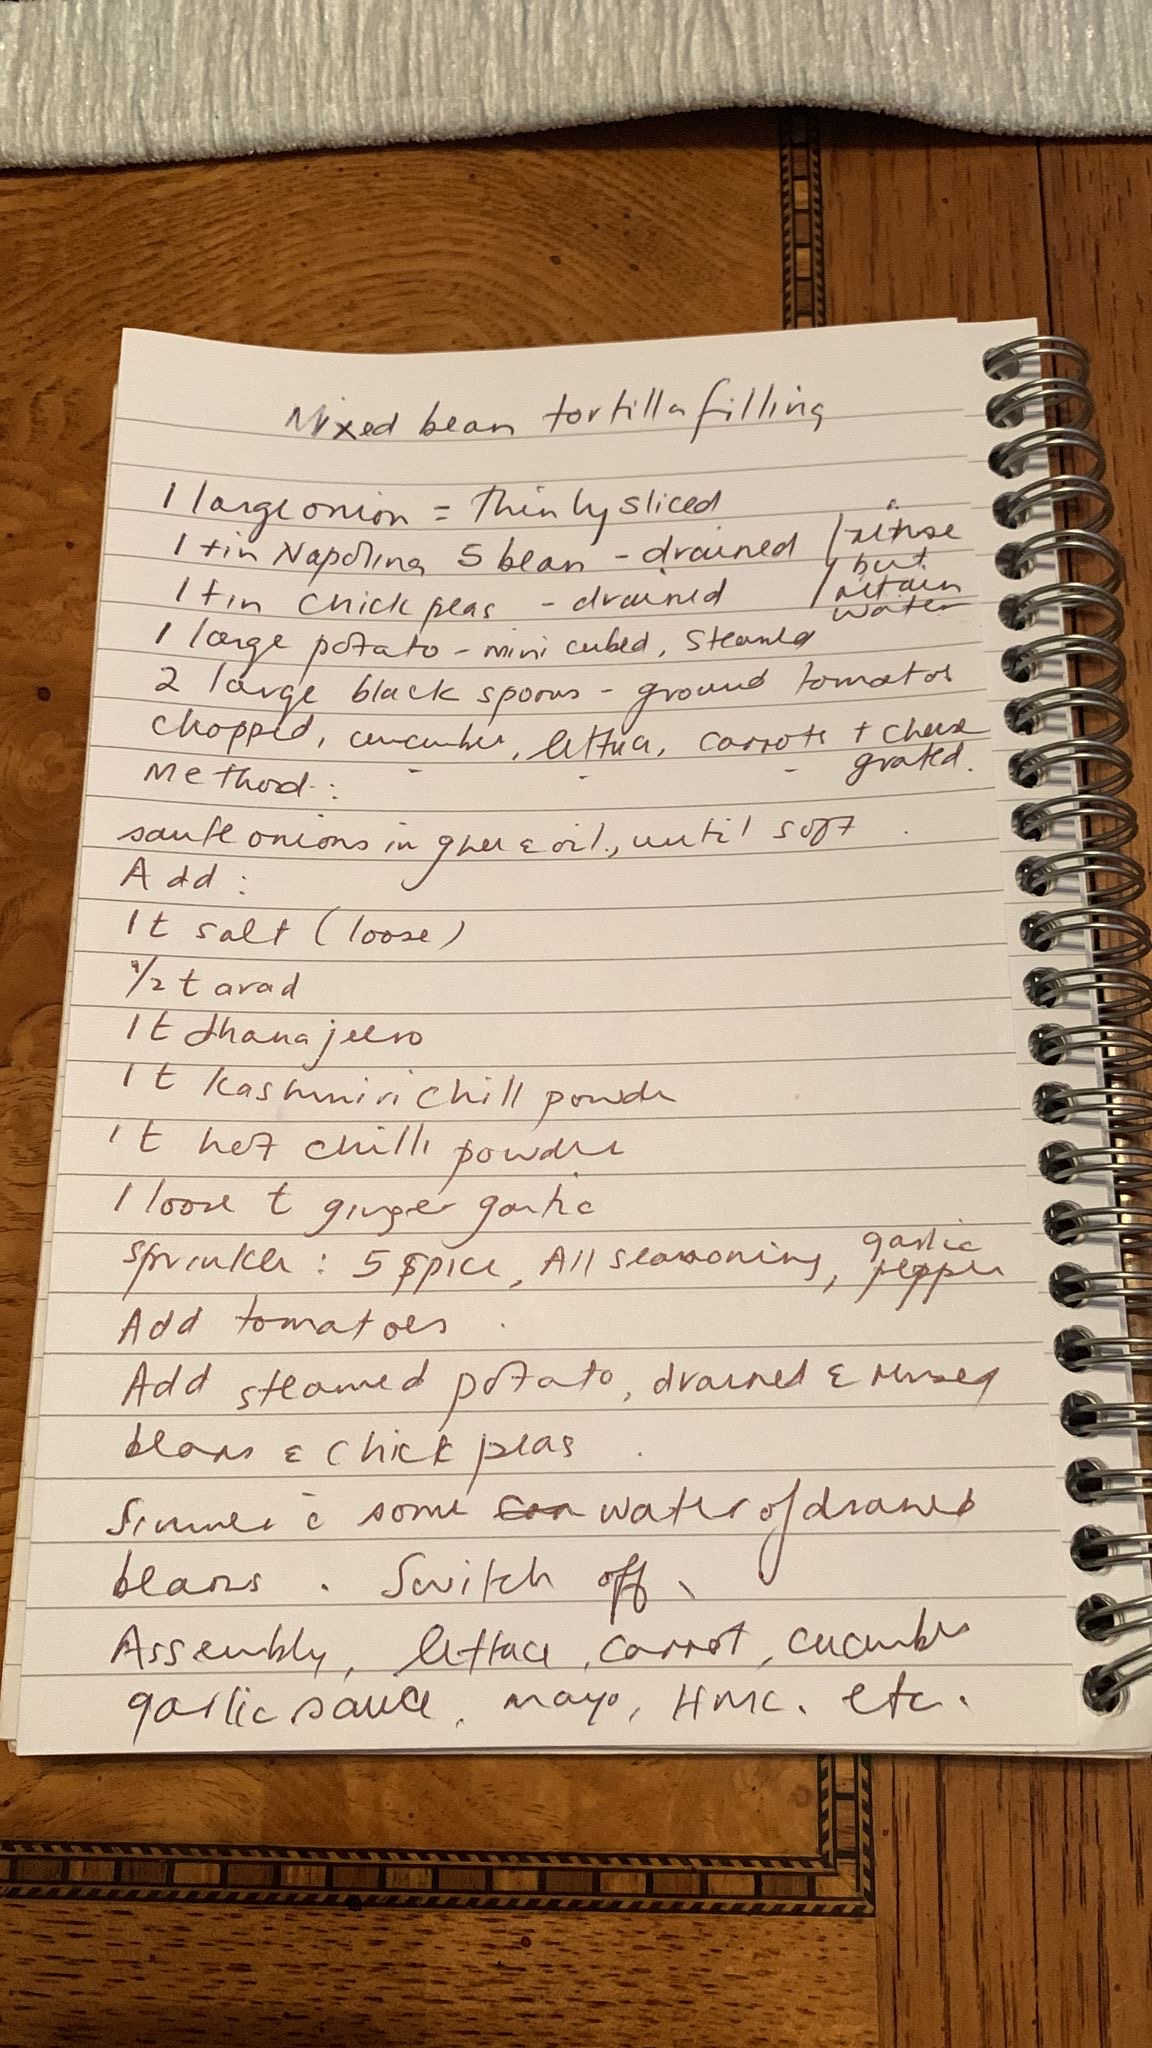 Mixed bean tortilla filling
1 large onion = Thinly sliced
1 tin Napolina 5 bean - drained / rinse
/ but
1 tin chick peas - drained / retain
water
1 large potato - mini cubed, steamed
2 large black spoons - ground tomatos
chopped, cucumber, lettuce, carrots + cheese
grated.
Method:
saute onions in ghee & oil, until soft
Add:
1 t salt (loose)
1/2 t arad
1 t dhana jeero
1 t kashmiri chilli powder
1 t hot chilli powder
1 loose t ginger garlic
sprinkle: 5 spice, All seasoning, garlic
pepper
Add tomatoes.
Add steamed potato, drained & rinsed
beans & chick peas.
Simmer c̄ some water of drained
beans. Switch off.
Assembly, lettuce, carrot, cucumber
garlic sauce, mayo, HMC. etc.